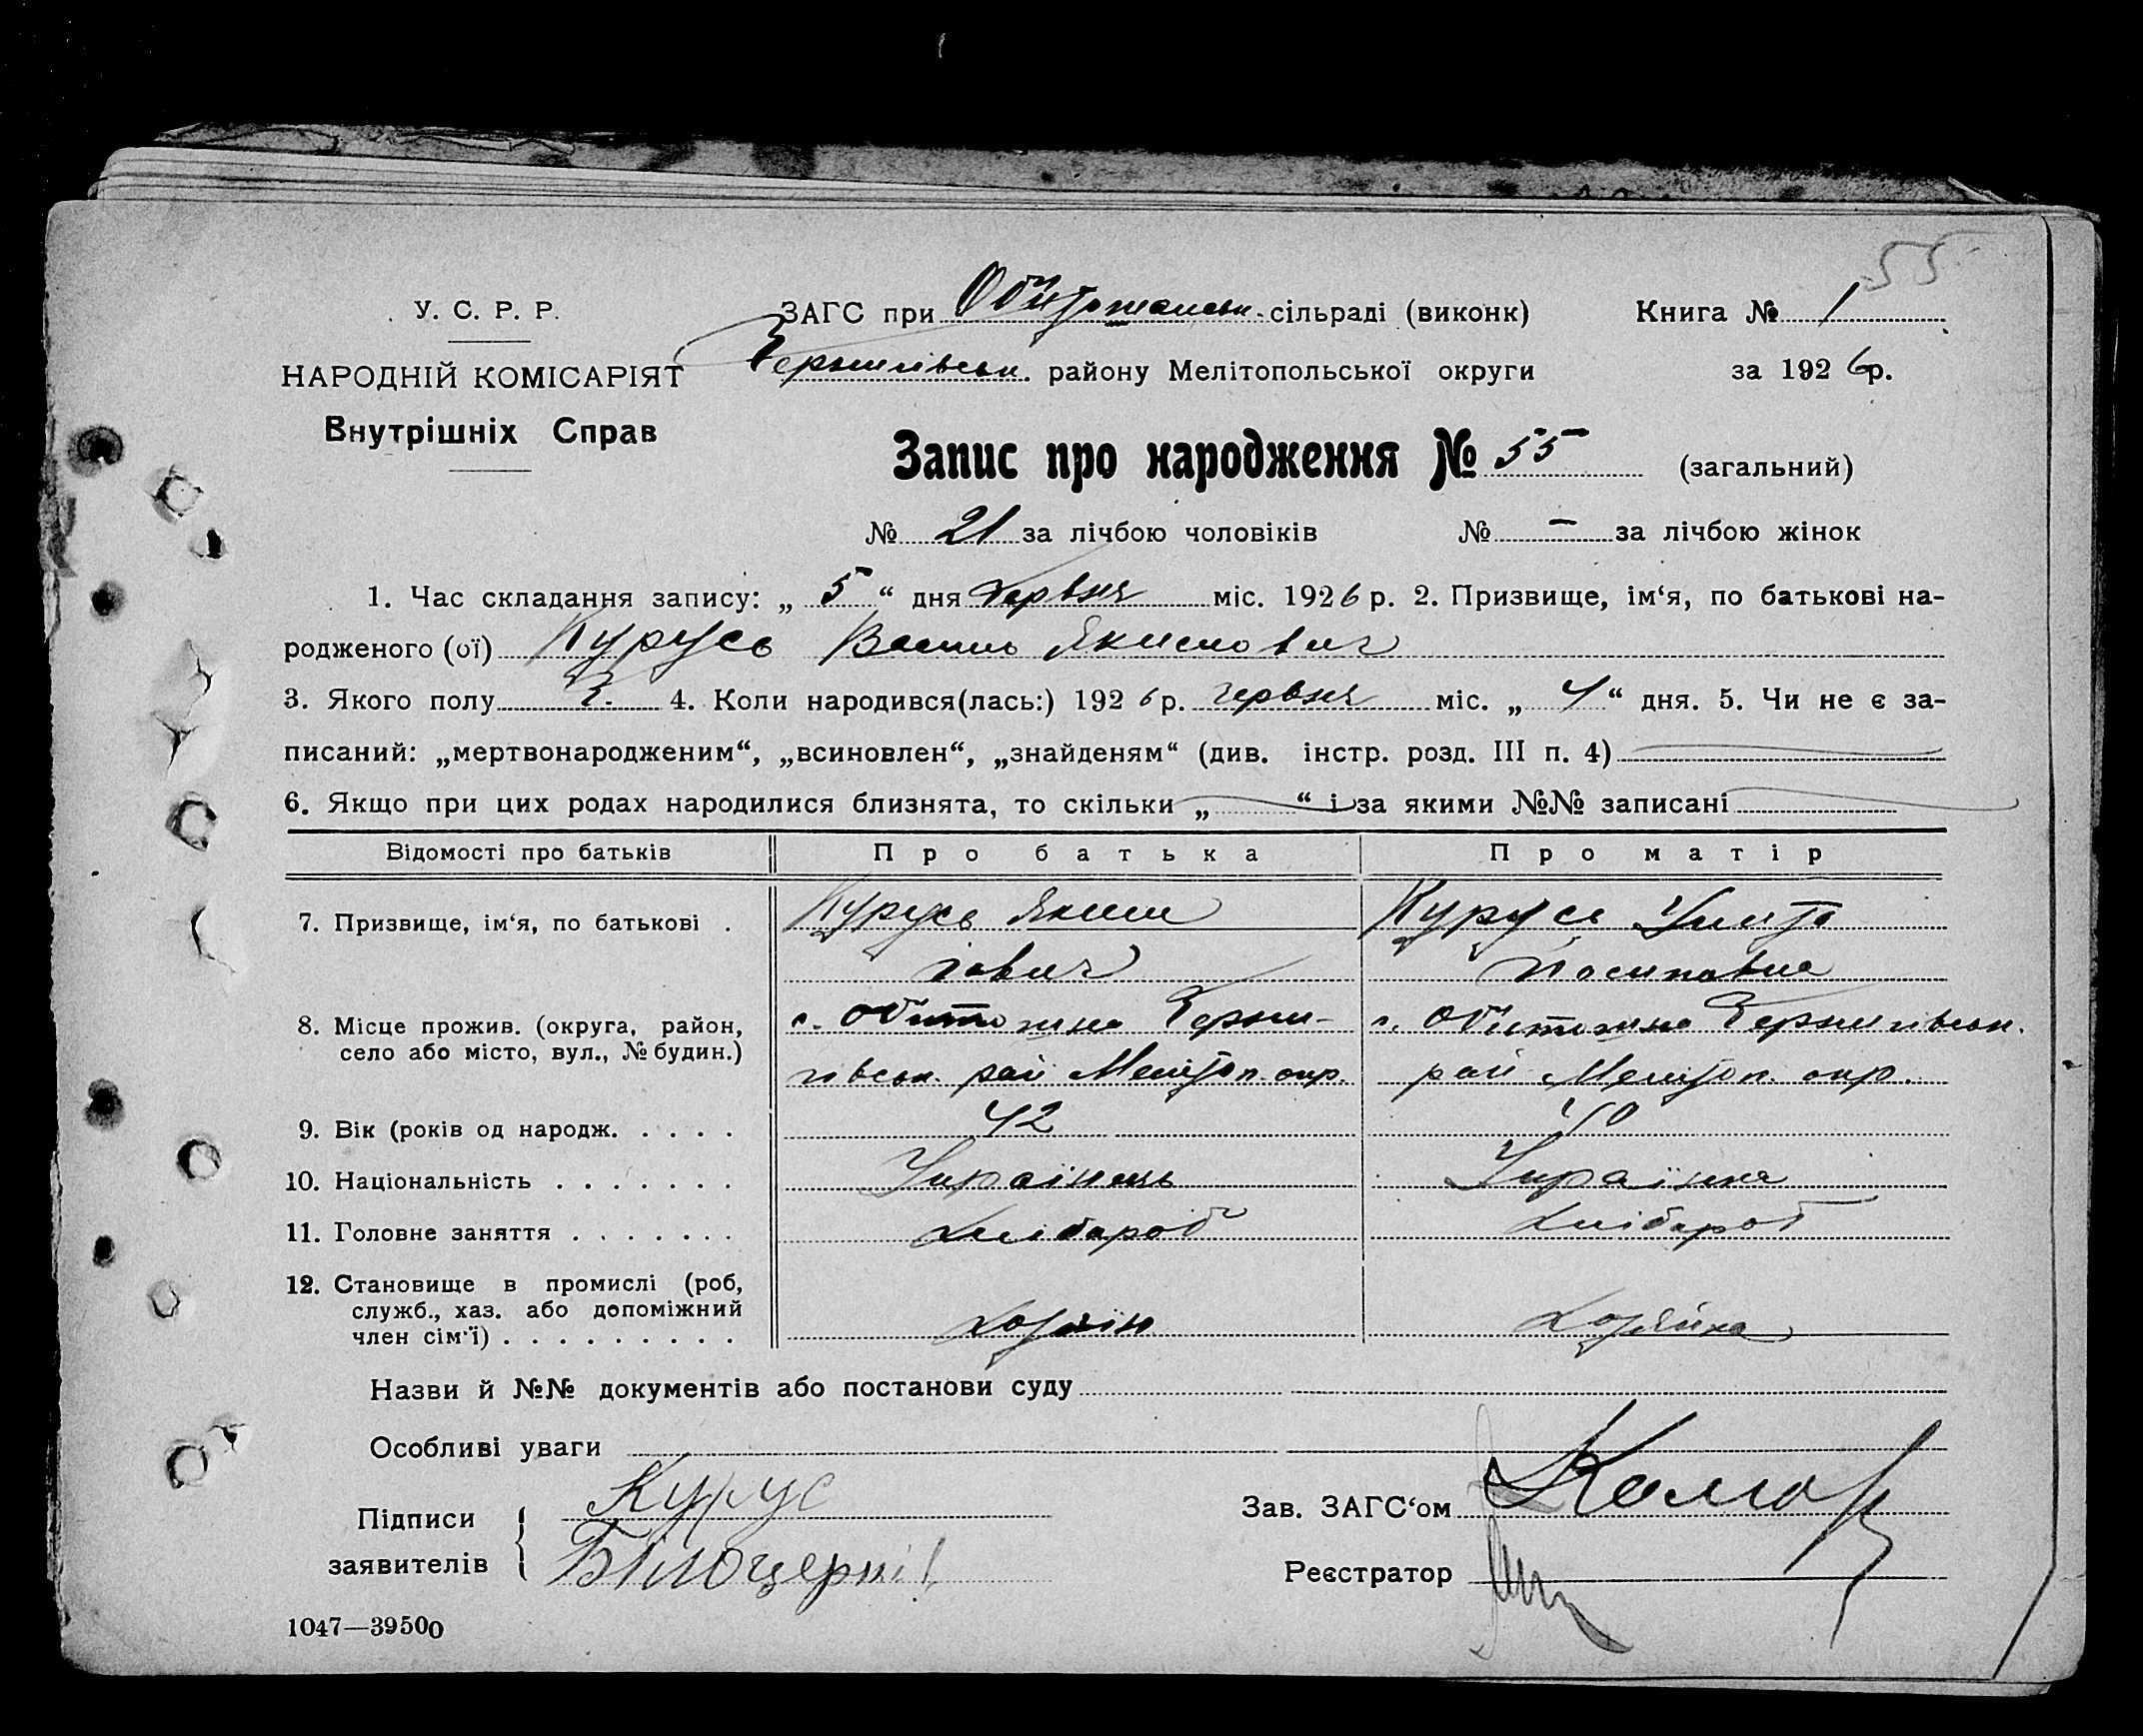 55
У. С. Р. Р.
ЗАГС при Обитошанськ. сільраді (виконк)
Книга № 1
НАРОДНІЙ КОМІСАРІЯТ
Чернигівськ. району Мелітопольської округи
за 1926р.
Внутрішніх Справ
Запис про народження № 55 (загальний)
№ 21 за лічбою чоловіків № — за лічбою жінок
1. Час складання запису: „ 5 “ дня Червня міс. 1926 р. 2. Призвище, ім‘я, по батькові на-
родженого (ої) Курусь Василь Якимович
3. Якого полу ч. 4. Коли народився(лась:) 1926 р. червня міс. „ 4 “ дня. 5. Чи не є за-
писаний: „мертвонародженим“, „всиновлен“, „знайденям“ (див. інстр. розд. III п. 4)
6. Якщо при цих родах народилися близнята, то скільки „ “ і за якими №№ записані
Відомості про батьків Про батька Про матір
7. Призвище, ім‘я, по батькові . Курусь Яким Курусь
Йосиповна
8. Місце прожив. (округа, район, с. Обиточна Черни- с. Обиточна Чернигівськ.
село або місто, вул., № будин.) гівськ. рай Мелітоп. окр. рай Мелітоп. окр.
9. Вік (років од народж. . . . . 42 40
10. Національність . . . . . . . Українець Українка
11. Головне заняття . . . . . . . Хлібороб Хлібороб
12. Становище в промислі (роб,
служб., хаз. або допоміжний
член сім‘ї) . . . . . . . . . Хозяїн Хозяйка
Назви й №№ документів або постанови суду
Особливі уваги
Підписи Курус
Зав. ЗАГС‘ом
заявителів
Реєстратор
1047—39500